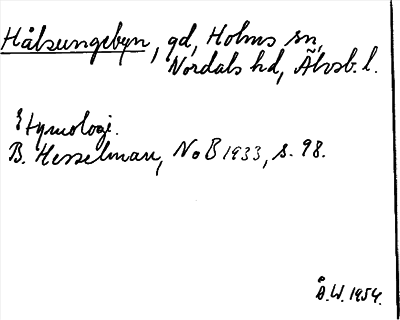 Hålsungebyn, gd, Holms sn,
Nordals hd, Älvsb. l.
Etymologi.
B. Hesselman, NoB 1933, s. 98.
Å.W. 1954.